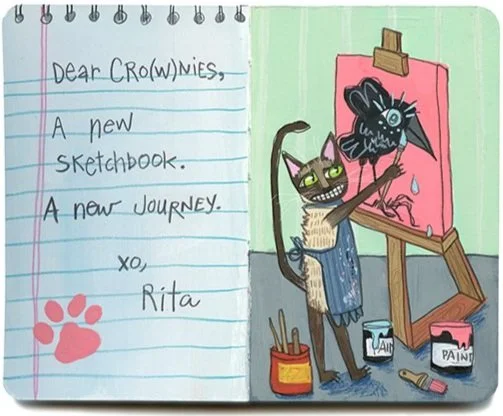 Dear CRO(W)NIES,
A new
SKetchbook.
A new JOURNEY.
xo,
Rita
PAIN
PAINT